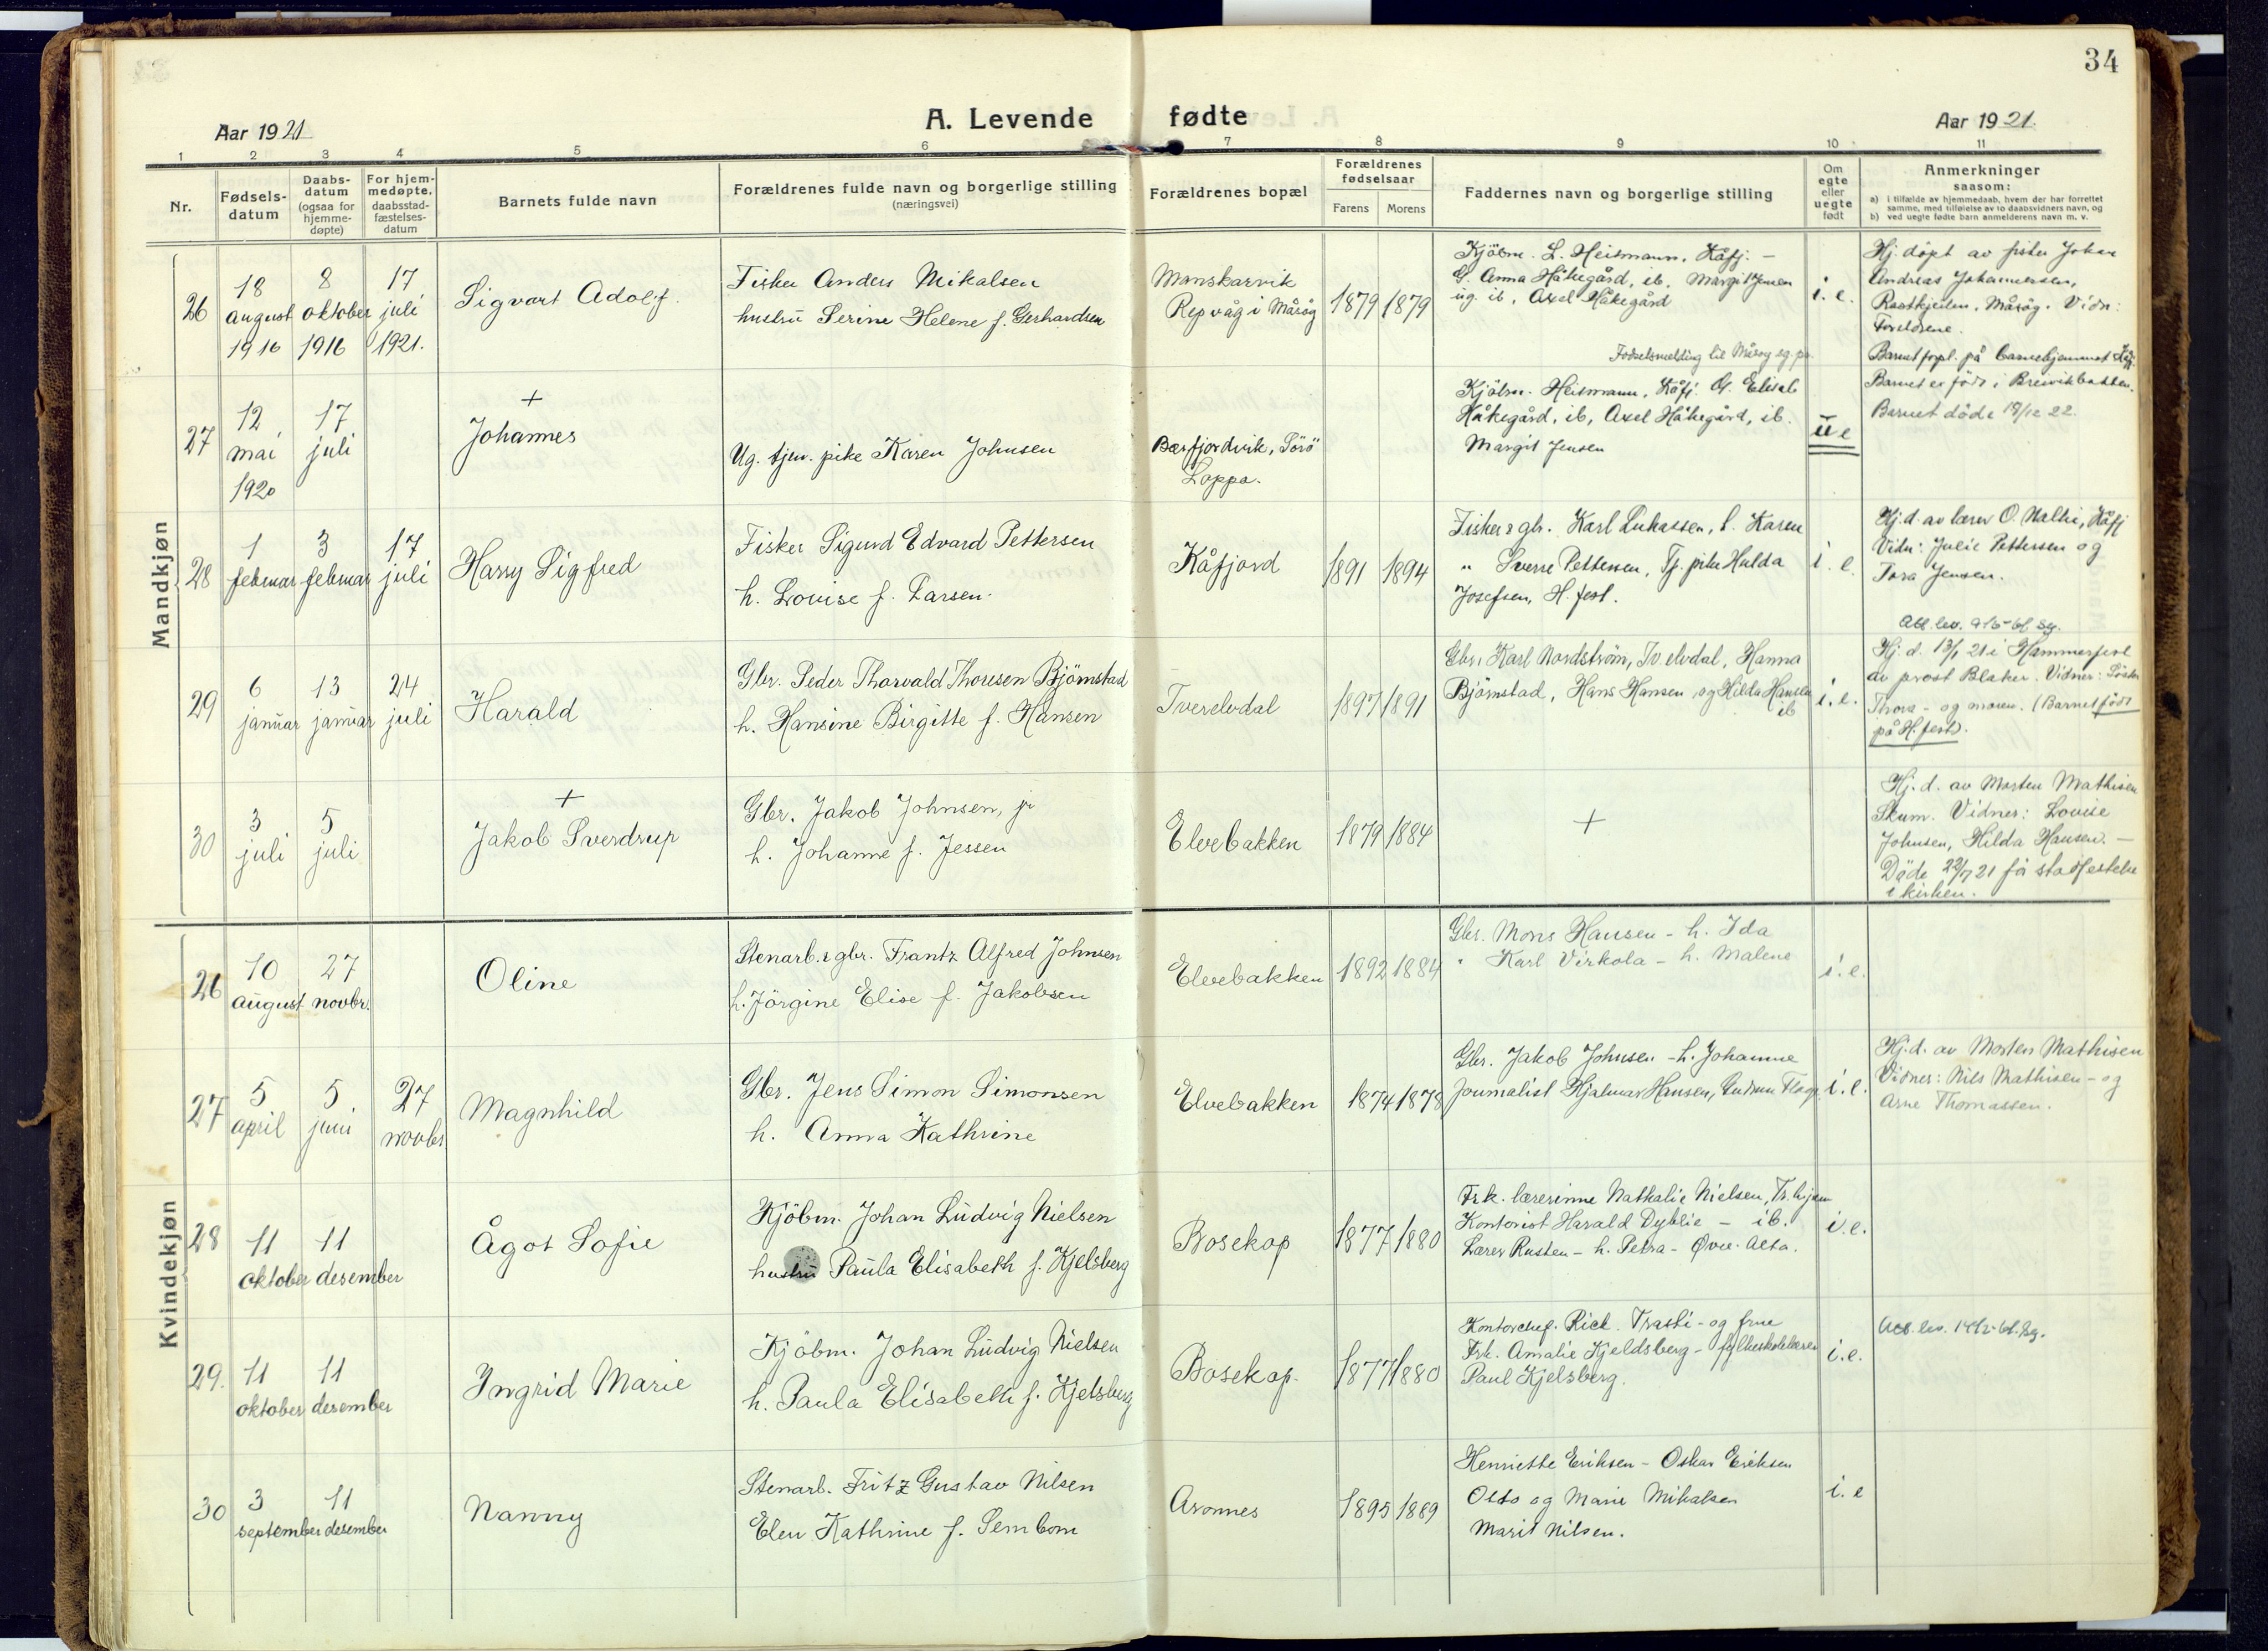 34
Aar 1921
A. Levende fødte
Aar 1921.
1 2 3 4 5 6 7 8 9 10 11
Nr.
Fødsels-
datum
Daabs-
datum
(ogsaa for
hjemme-
døpte)
For hjem-
medøpte,
daabsstad-
fæstelses-
datum
Barnets fulde navn
Forældrenes fulde navn og borgerlige stilling
(næringsvei)
Forældrenes bopæl
Forældrenes
fødselsaar
Farens Morens
Faddernes navn og borgerlige stilling
Om
egte
eller
uegte
født
Anmerkninger
saasom:
a) i tilfælde av hjemmedaab, hvem der har forrettet
samme, med tilføielse av to daabsvidners navn, og
b) ved uegte fødte barn anmelderens navn m. v.
Mandkjøn
26
18
august
1916
8
oktober
1916
17
juli
1921.
Sigvart Adolf.
Fisker Anders Mikalsen
hustru Serine Helene f. Gerhardsen
Repvåg i Måsøy
1879 1879
Kjöbm. L. Heitmann, Kåfj. –
G. Anna Håkegård, ib, Margit Jensen
ug. ib, Axel Håkegård
Fødselsmelding til Måsøy
i. e.
Hj. døpt av fisker Johan
Andreas Johannessen,
Måsøy. Vidn:
Foreldrene.
Barnet på barnehjemmet
27
12
mai
1920
17
juli
+
Johannes
Ug. tjen. pike Karen Johnsen
Bærfjordvik, Sörö
Loppa.
Kjöbm. Heitmann, Kåfj. G. Elisab
Håkegård, ib, Axel Håkegård, ib.
Margit Jensen
ue
Barnet er född i Breivikbotten.
Barnet döde 18/12 22.
28
1
februar
3
februar
17
juli
Harry Sigfred
Fisker Sigurd Edvard Pettersen
h. Lovise f. Larsen.
Kåfjord
1891 1894
Fisker & gbr. Karl Lukassen, h. Karen
" Sverre Pettersen, Tj. pike Hulda
Josefsen, H.fest.
i. e.
Hj. d. av lærer O. Kåfj
Vidn: Julie Pettersen og
Tora Jensen.
29
6
januar
13
januar
24
juli
Harald
Gbr. Peder Thorvald Thoresen Björnstad
h. Hansine Birgitte f. Hansen
Tverelvdal
1897 1891
Gbr. Karl Nordström, Tv.elvdal, Hanna
Björnstad, Hans Hansen og Hilda Hansen
ib
i. e.
Hj. d. 13/1 21 i Hammerfest
av prost Blaker. Vidner: Söster
Thora – og moren. (Barnet födt
på H.fest).
30
3
juli
5
juli
+
Jakob Sverdrup
Gbr. Jakob Johnsen, jr
h. Johanne f. Jessen
Elvebakken
1879 1884
+
Hj. d. av Morten Mathisen
Skum. Vidner: Lovise
Johnsen, Hilda Hansen. –
Döde 22/7 21 för stadfestelse
i kirken.
Kvindekjøn
26
10
august
27
novbr.
Oline
Stenarb. & gbr. Frantz Alfred Johnsen
h. Jörgine Elise f. Jakobsen
Elvebakken
1892 1884
Gbr. Mons Hansen – h. Ida
" Karl Virkola – h. Malene
i. e.
27
5
april
5
juni
27
novbr
Magnhild
Gbr. Jens Simon Simonsen
h. Anna Kathrine
Elvebakken
1874 1878
Gbr. Jakob Johnsen – h. Johanne
Journalist Hjalmar Hansen, Gudrun
i. e.
Hj. d. av Morten Mathisen
Vidner: Nils Mathisen – og
Arne Thomassen.
28
11
oktober
11
desember
Ågot Sofie
Kjöbm. Johan Ludvig Nielsen
hustru Paula Elisabeth f. Kjelsberg
Bosekop
1877 1880
Frk. lærerinne Nathalie Nielsen, Tr.hjem
Kontorist Harald Dyblie – ib.
Lærer Rusten – h. Petra – Øvre-Alta.
i. e.
29.
11
oktober
11
desember
Ingrid Marie
Kjöbm. Johan Ludvig Nielsen
h. Paula Elisabeth f. Kjelsberg
Bosekop.
1877 1880
Kontorchef. Rick. Trasti – og frue
Frk. Amalie Kjeldsberg – fylkesskolelærer
Paul Kjelsberg.
i. e.
30
3
september
11
desember
Nanny
Stenarb. Fritz Gustav Nilsen
Elen Kathrine f. Sembom
Aronnes
1895 1889
Henriette Eriksen – Oskar Eriksen
Otto og Marie Mikalsen
Marit Nilsen.
i. e